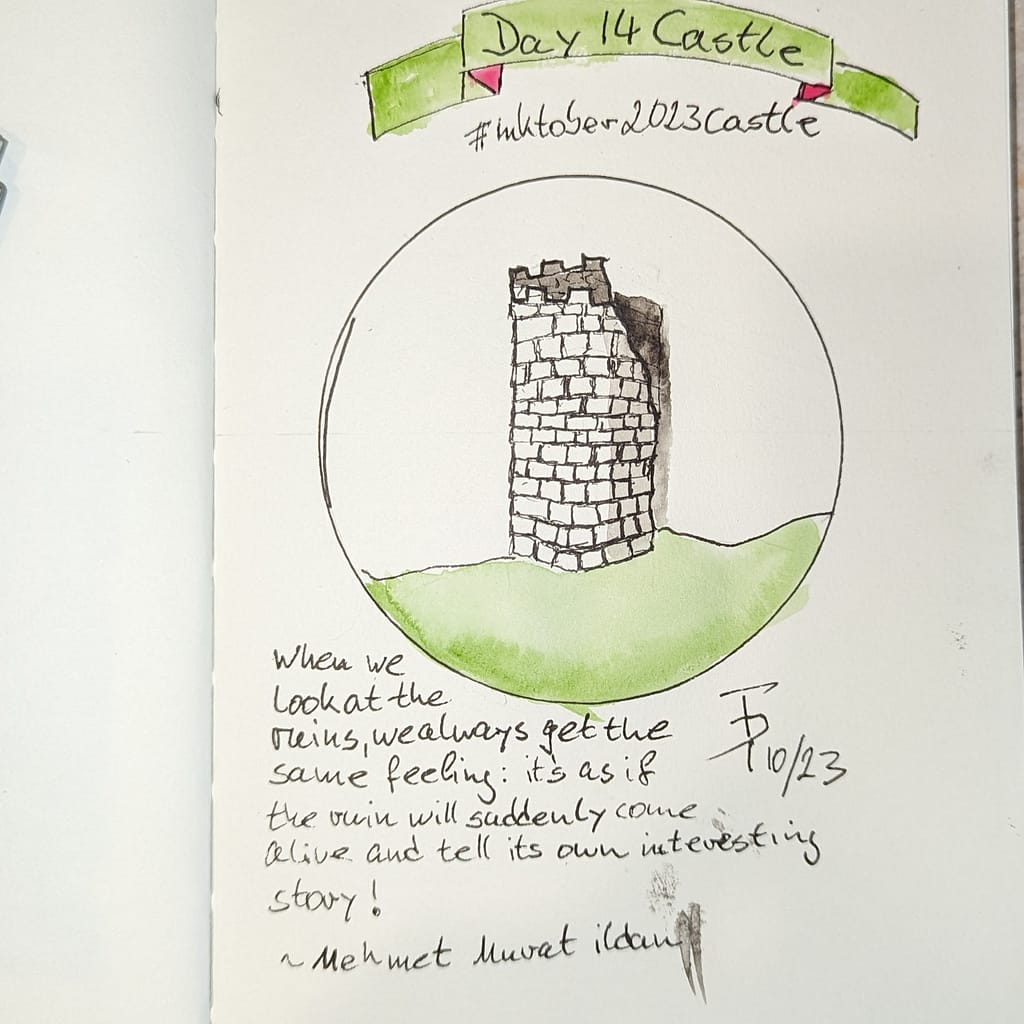 Day 14 Castle
#inktober2023castle
When we
look at the
ruins, we always get the
same feeling: it's as if
the ruin will suddenly come
alive and tell its own interesting
story!
~ Mehmet Murat ildan
10/23